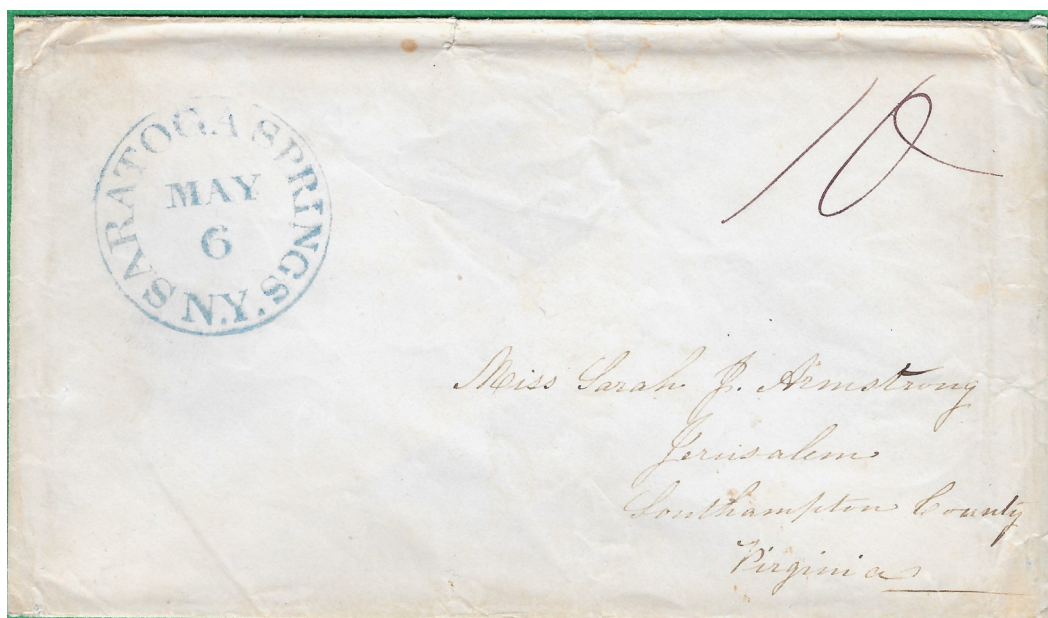 SARATOGA SPRINGS
N.Y.
MAY
6
10
Miss Sarah J. Armstrong
Jerusalem
Southampton County
Virginia